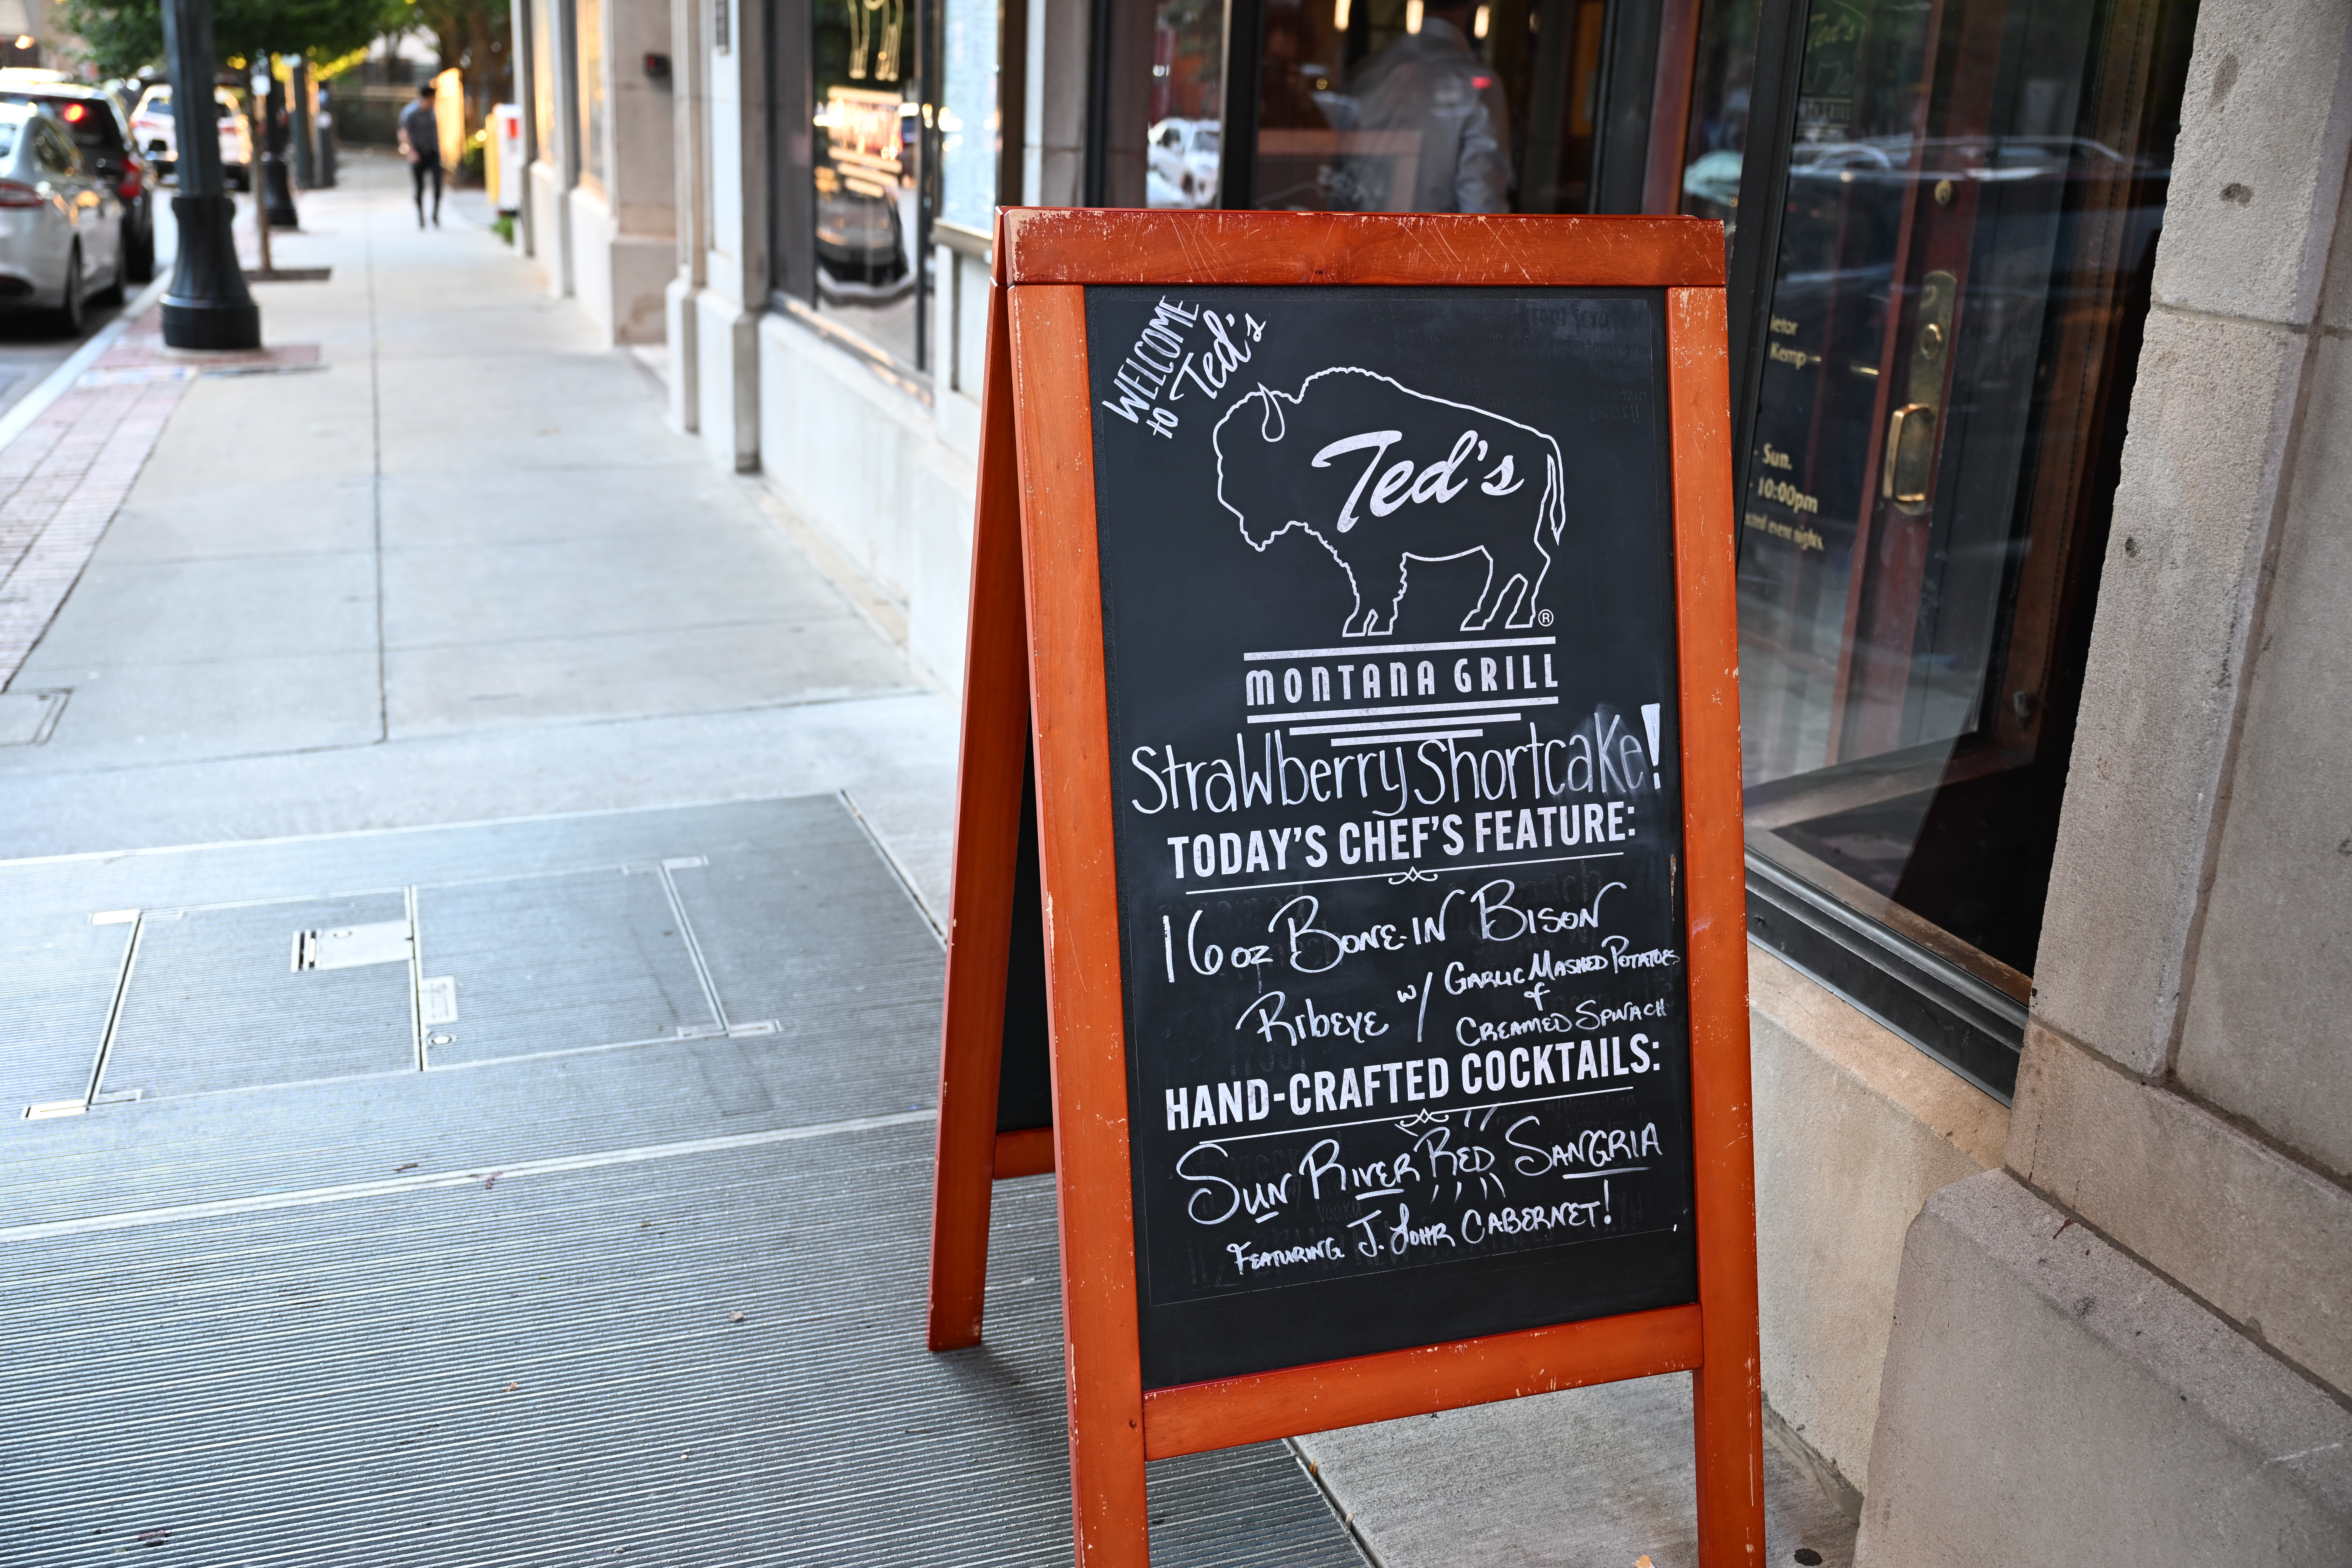 WELCOME
to Ted's
Ted's
®
MONTANA GRILL
Strawberry Shortcake!
TODAY'S CHEF'S FEATURE:
16oz BONE-IN BISON
RIBEYE w/ GARLIC MASHED POTATOES
&
CREAMED SPINACH
HAND-CRAFTED COCKTAILS:
SUN RIVER RED SANGRIA
FEATURING J. LOHR CABERNET!
Ted's
Kemp
Sun.
10:00pm
event nights.